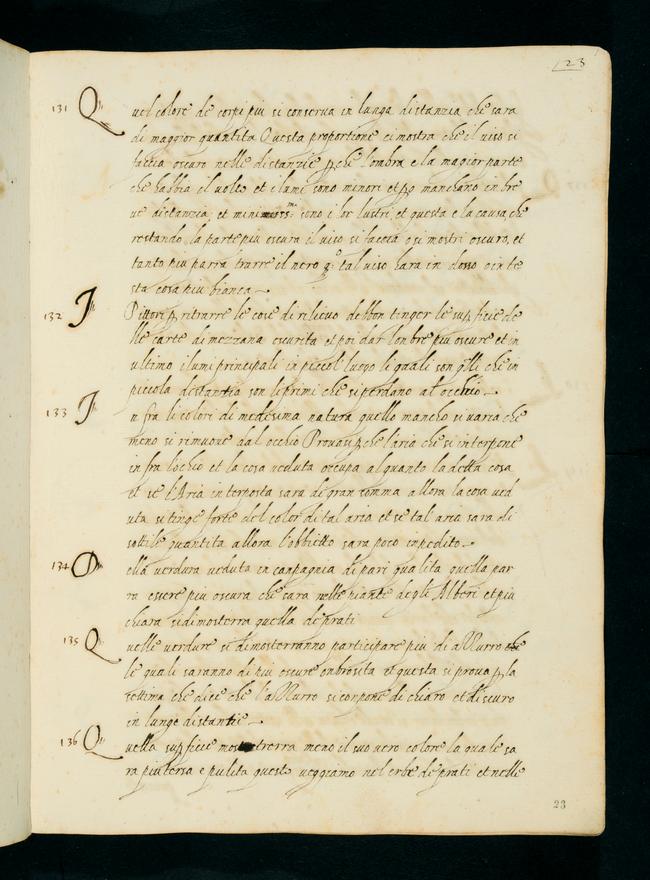 23
131 Quel colore de corpi piu si conserva in lunga distanzia che sara
di maggior quantita Questa proportione ci mostra che il viso si
faccia oscuro nelle distanzie p che l'ombra e la magior parte
che habbia il volto et i lumi sono minori et po manchano in bre
ve distanzia, et minimiss.mi sono i lor lustri, et questa e la causa che
restando la parte piu oscura il viso si faccia o si mostri oscuro, et
tanto piu parra trarre il nero q.o tal viso hara in dosso o in te
sta cosa piu bianca
132 I Pittori p ritrarre le cose di rilievo debbon tinger le supficie de
lle carte di mezzana oscurita et poi dar l'onbre piu oscure et in
ultimo i lumi principali in piccol luogo li quali son q.lli che in
piccola destantia son li primi che si perdano al occhio
133 In fra li colori di medesima natura quello mancho si varia che
meno si rimuove dal occhio Provasi p che l'aria che si interpone
in fra l'ochio et la cosa veduta occupa alquanto la detta cosa
et se l'Aria interposta sara di gran somma allora la cosa ved
uta si tinge forte del color di tal aria et se tal aria sara di
sottile quantita allora l'obbietto sara poco impedito
134 Della verdura veduta in canpagnia di pari qualita quella par
ra essere piu oscura che sara nelle piante degli Alberi et piu
chiara si dimosterra quella de prati
135 Quelle verdure si dimosterranno participare piu di azzurro che
le quali saranno di piu oscure onbrosita et questa si prova p la
settima che dice che l'azzurro si conpone di chiaro et di scuro
in lunge distantie
136 Quella supficie mosterra meno il suo vero colore la quale sa
ra piu tersa e pulita questo veggiamo nel erbe de prati et nelle
23